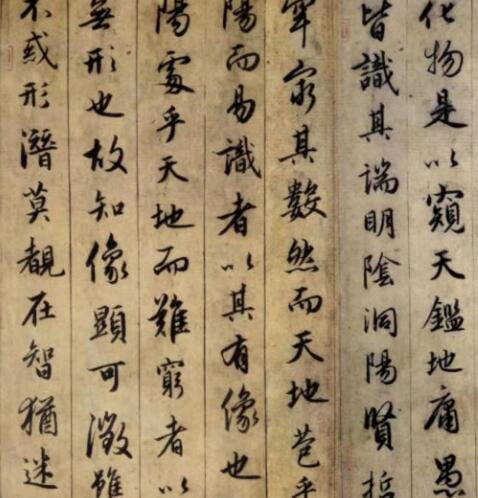 化物是以窺天鑑地庸愚
皆識其端明陰洞陽賢哲
罕窮其數然而天地苞乎
陽而易識者以其有像也
陽處乎天地而難窮者以
無形也故知像顯可徵雖
不惑形潛莫覩在智猶迷